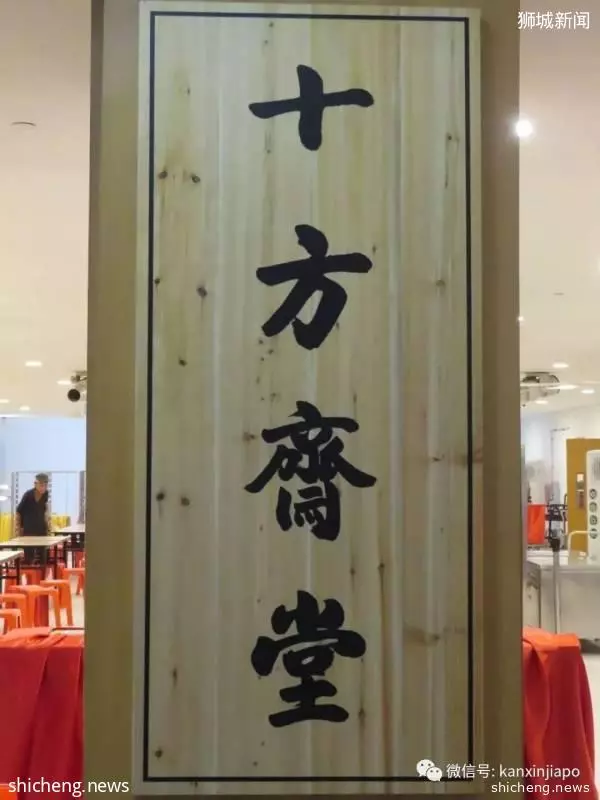 狮城新闻
十方齋堂
微信号: kanxinjiapo
shicheng.news
shicheng.news